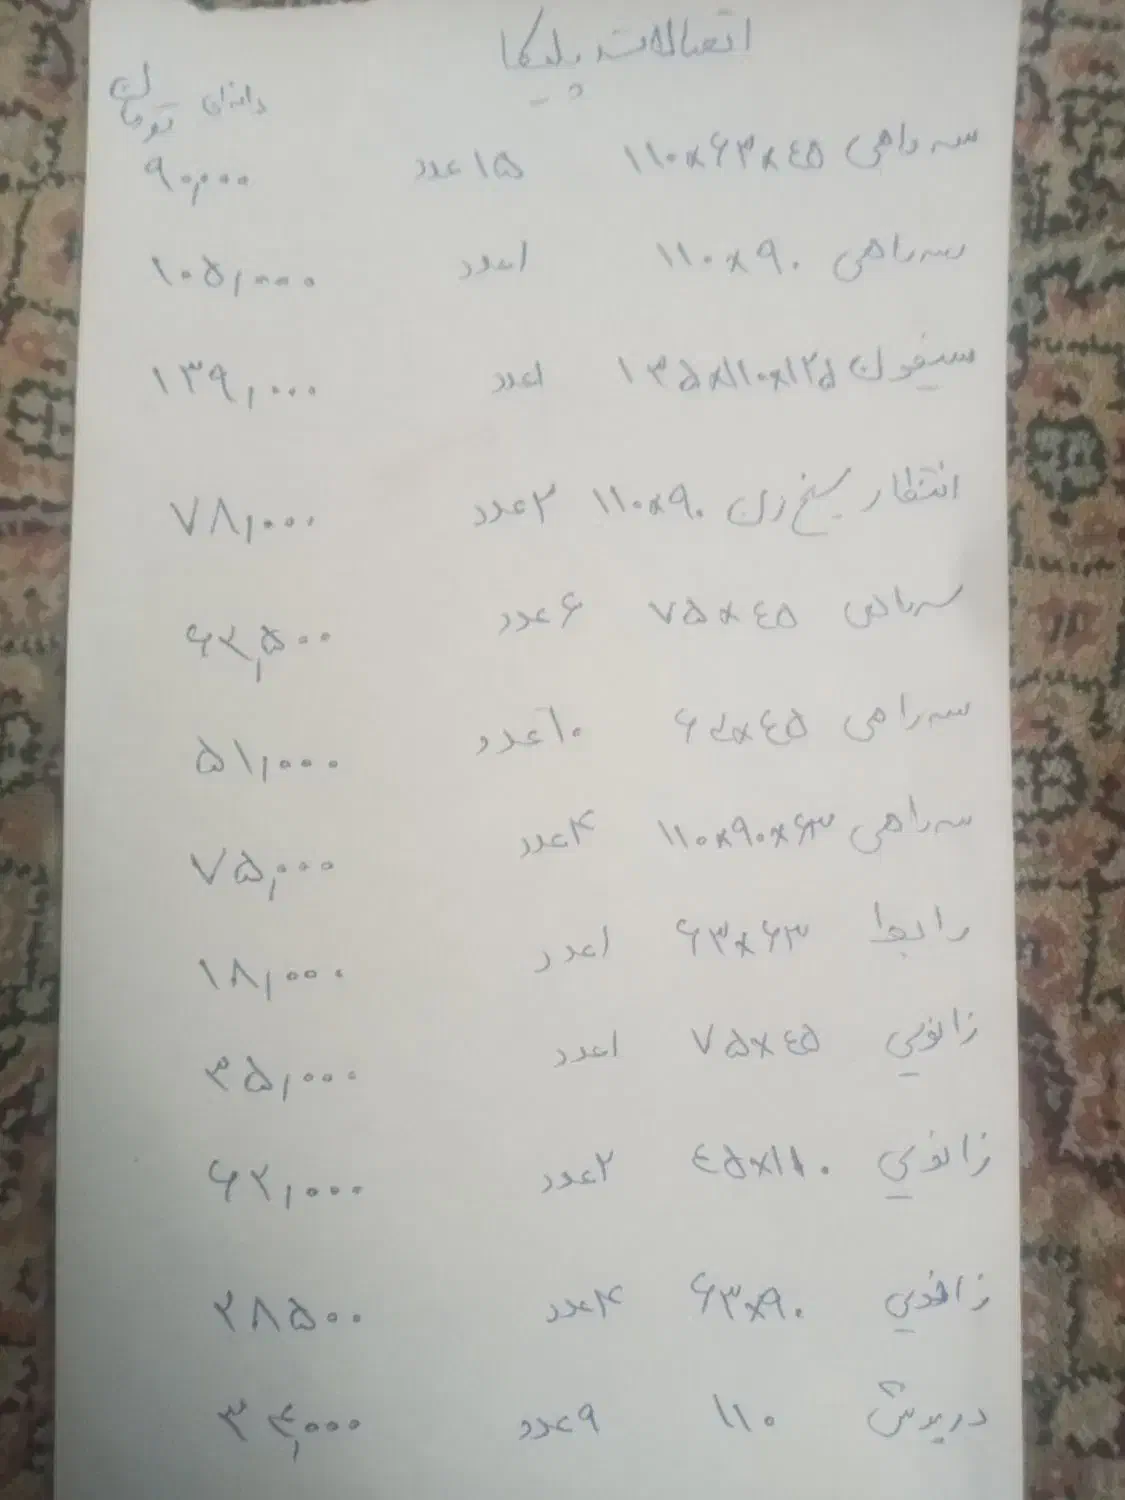 اتصالات پلیکا
دانه‌ای تومان
سه راهی ۴۵×۶۳×۱۱۰ ۱۵ عدد ۹۰,۰۰۰
سه راهی ۹۰×۱۱۰ ۱عدد ۱۰۵,۰۰۰
سیفون ۱۲۵×۱۱۰×۱۳۵ ۱عدد ۱۳۹,۰۰۰
انتظار سیخ زن ۹۰×۱۱۰ ۲عدد ۷۸,۰۰۰
سه راهی ۴۵×۷۵ ۶عدد ۶۲,۵۰۰
سه راهی ۴۵×۶۳ ۱۰عدد ۵۱,۰۰۰
سه راهی ۶۳×۹۰×۱۱۰ ۴عدد ۷۵,۰۰۰
رابط ۶۳×۶۳ ۱عدد ۱۸,۰۰۰
زانویی ۴۵×۷۵ ۱عدد ۳۵,۰۰۰
زانویی ۱۱۰×۴۵ ۲عدد ۶۲,۰۰۰
زانویی ۹۰×۶۳ ۴عدد ۲۸۵۰۰
درپوش ۱۱۰ ۹عدد ۳۴,۰۰۰